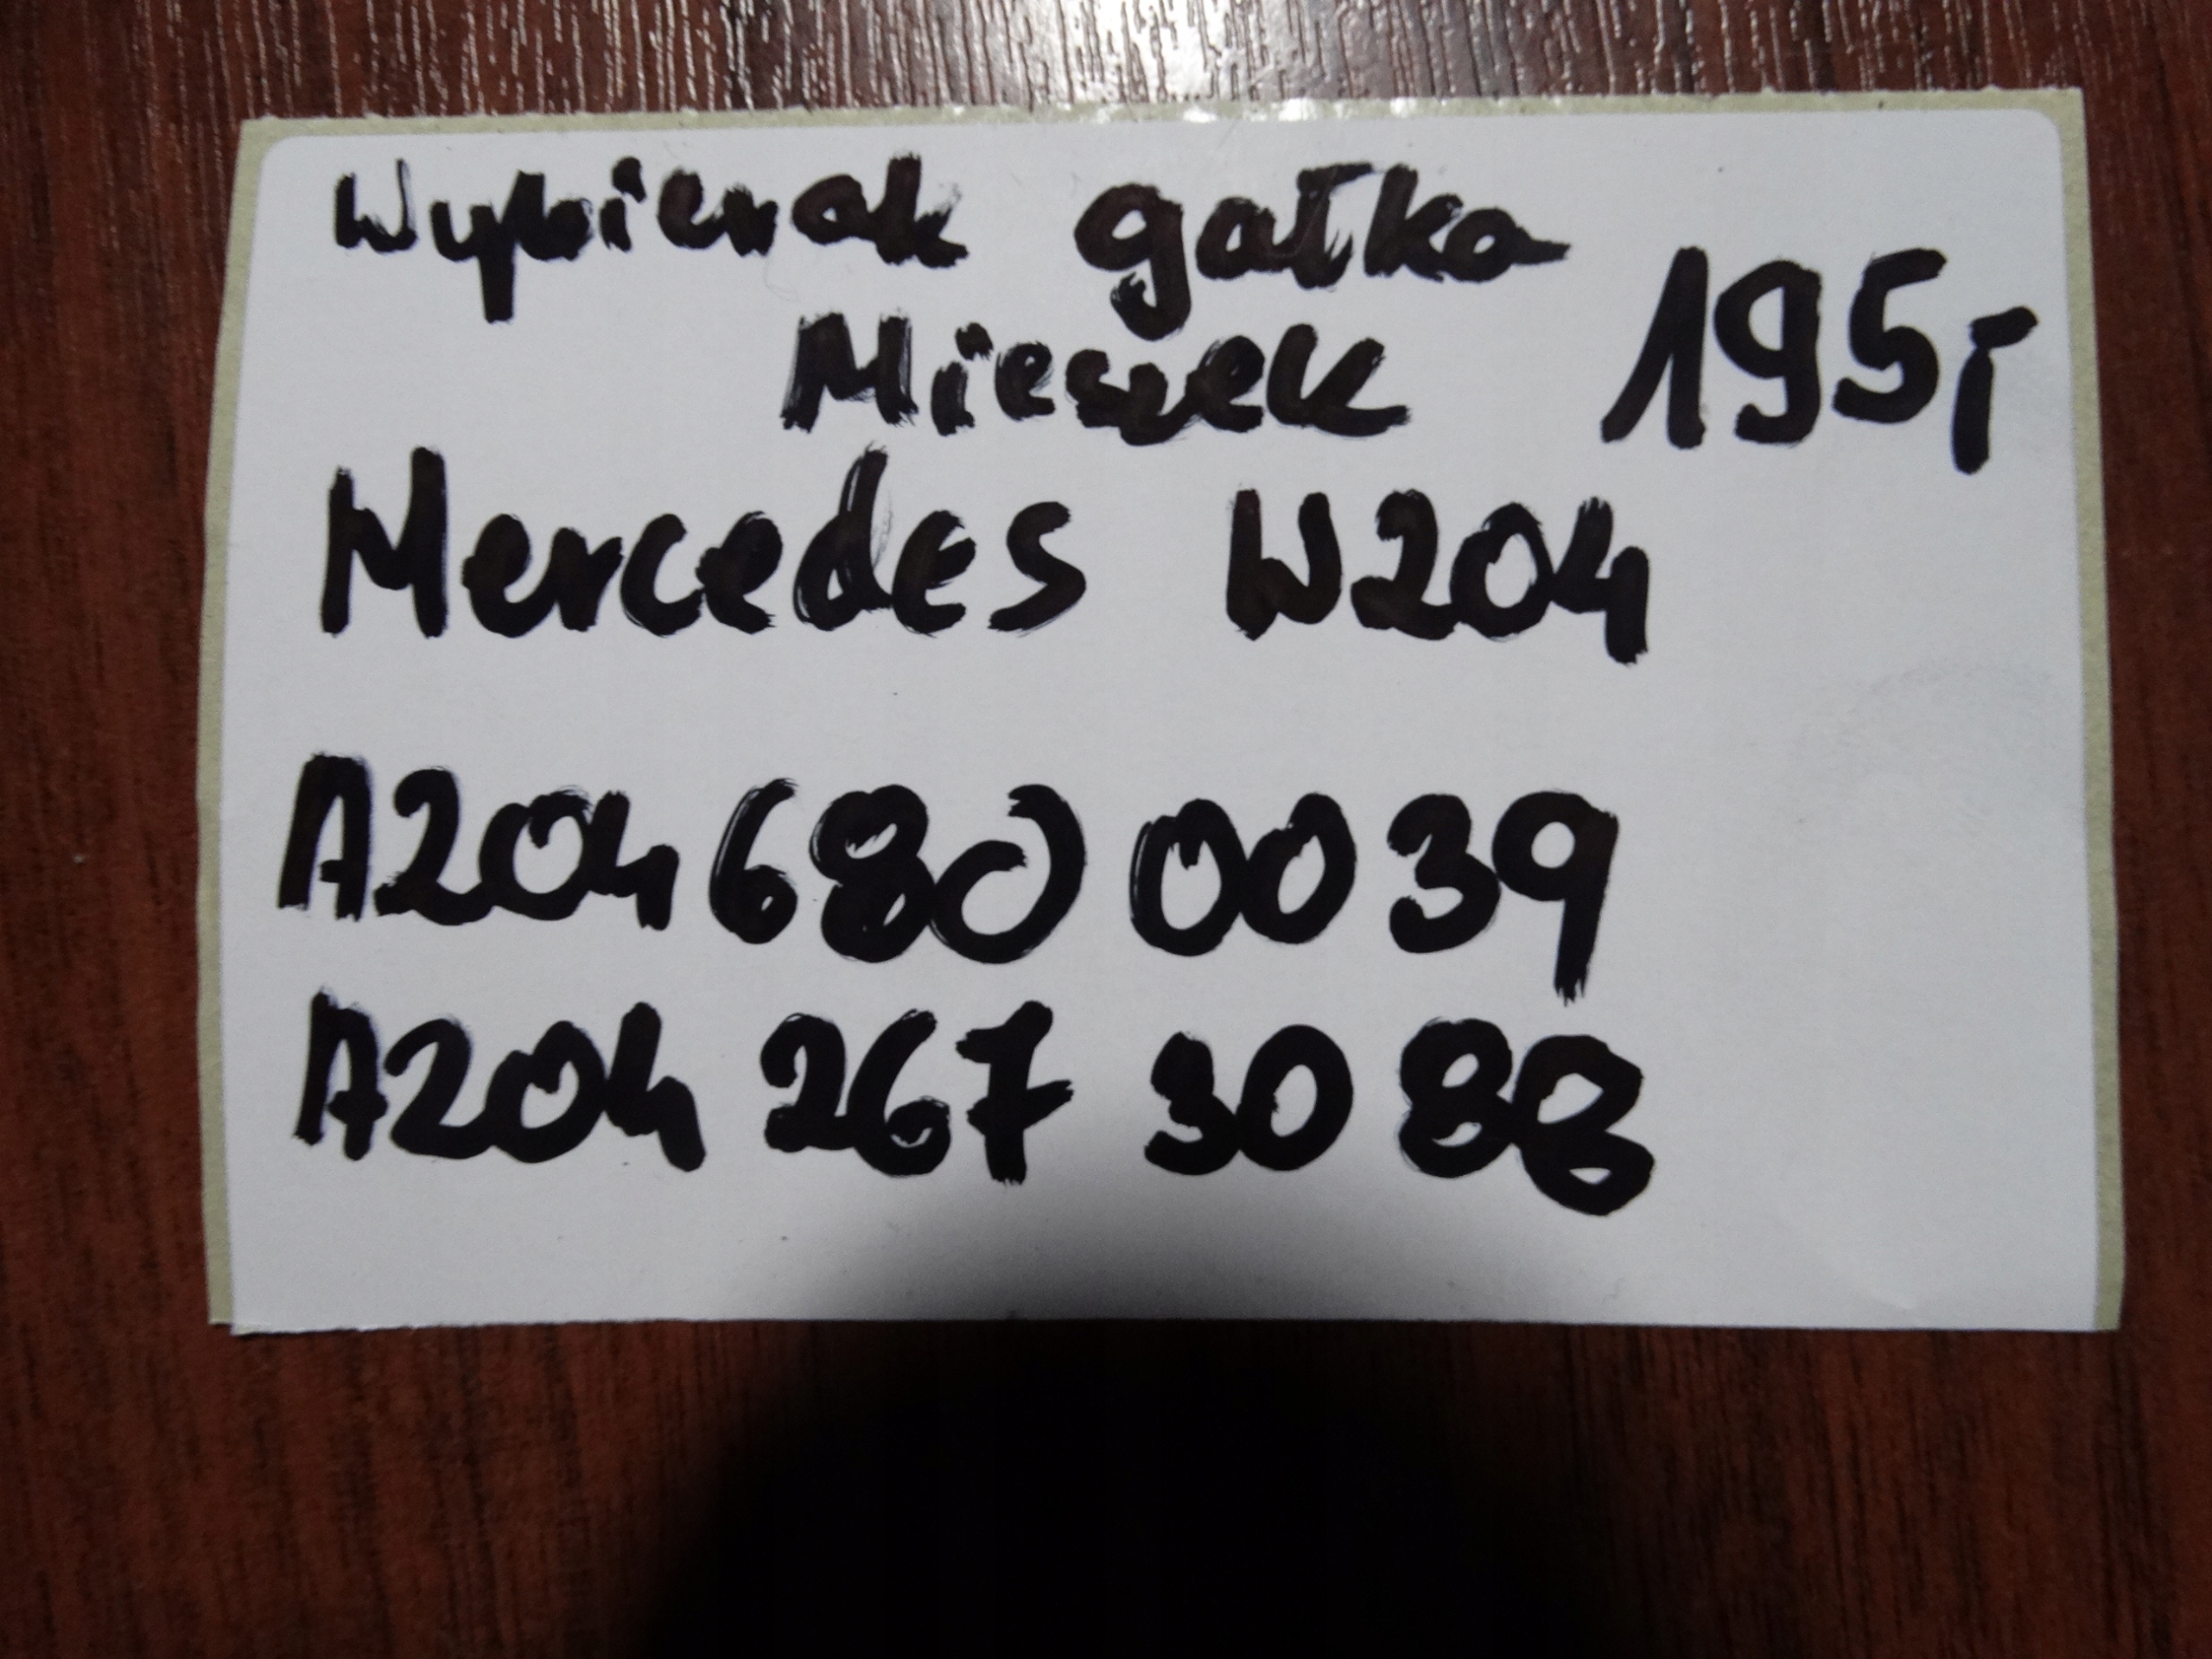 Wybierak gałka
Mieszek 195,-
Mercedes W204
A204 680 00 39
A204 267 30 88